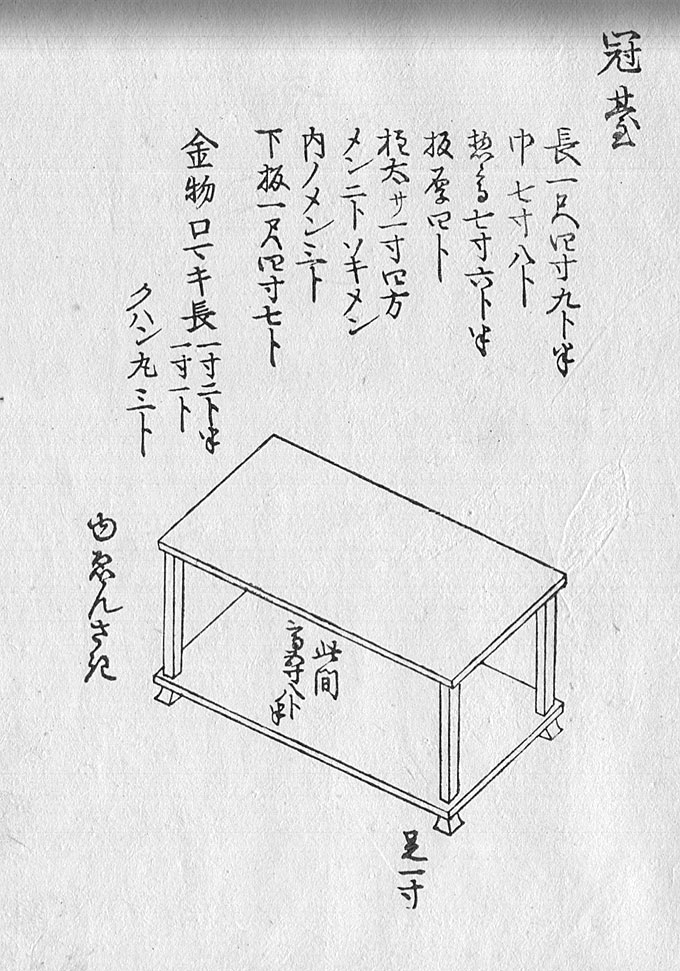 冠臺
長一尺四寸九卜半
巾七寸八卜
惣高七寸六卜半
板厚四卜
柱太サ一寸四方
メン二トソキメン
内ノメン三卜
下板一尺四寸七卜
金物口マキ長一寸二卜半
一寸一卜
クハン丸三卜
此間
高 寸八卜半
足一寸